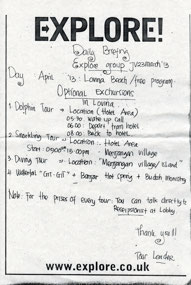 EXPLORE!
Daily Briefing
Explore group JV23march'13
Day April '13 : Lovina Beach / (free program)
Optional Excurtions
in Lovina
1. Dolphin Tour → Location (Hotel Area)
05.30 to wake up call
06.00 Depart from hotel
08.00 Back to hotel
2. Snorkling Tour → Location : Hotel Area
Start : 09.00 15.00pm : Menjangan village
3. Diving Tour → Location : "Menjangan village / Island"
4. Waterfall "Git-Git" → Banjar Hot Spring + Budish Monastry
Note : For the prices of every tour. You can talk directly to
Receptionist at Lobby.
Thank you!!
Tour Leader
www.explore.co.uk